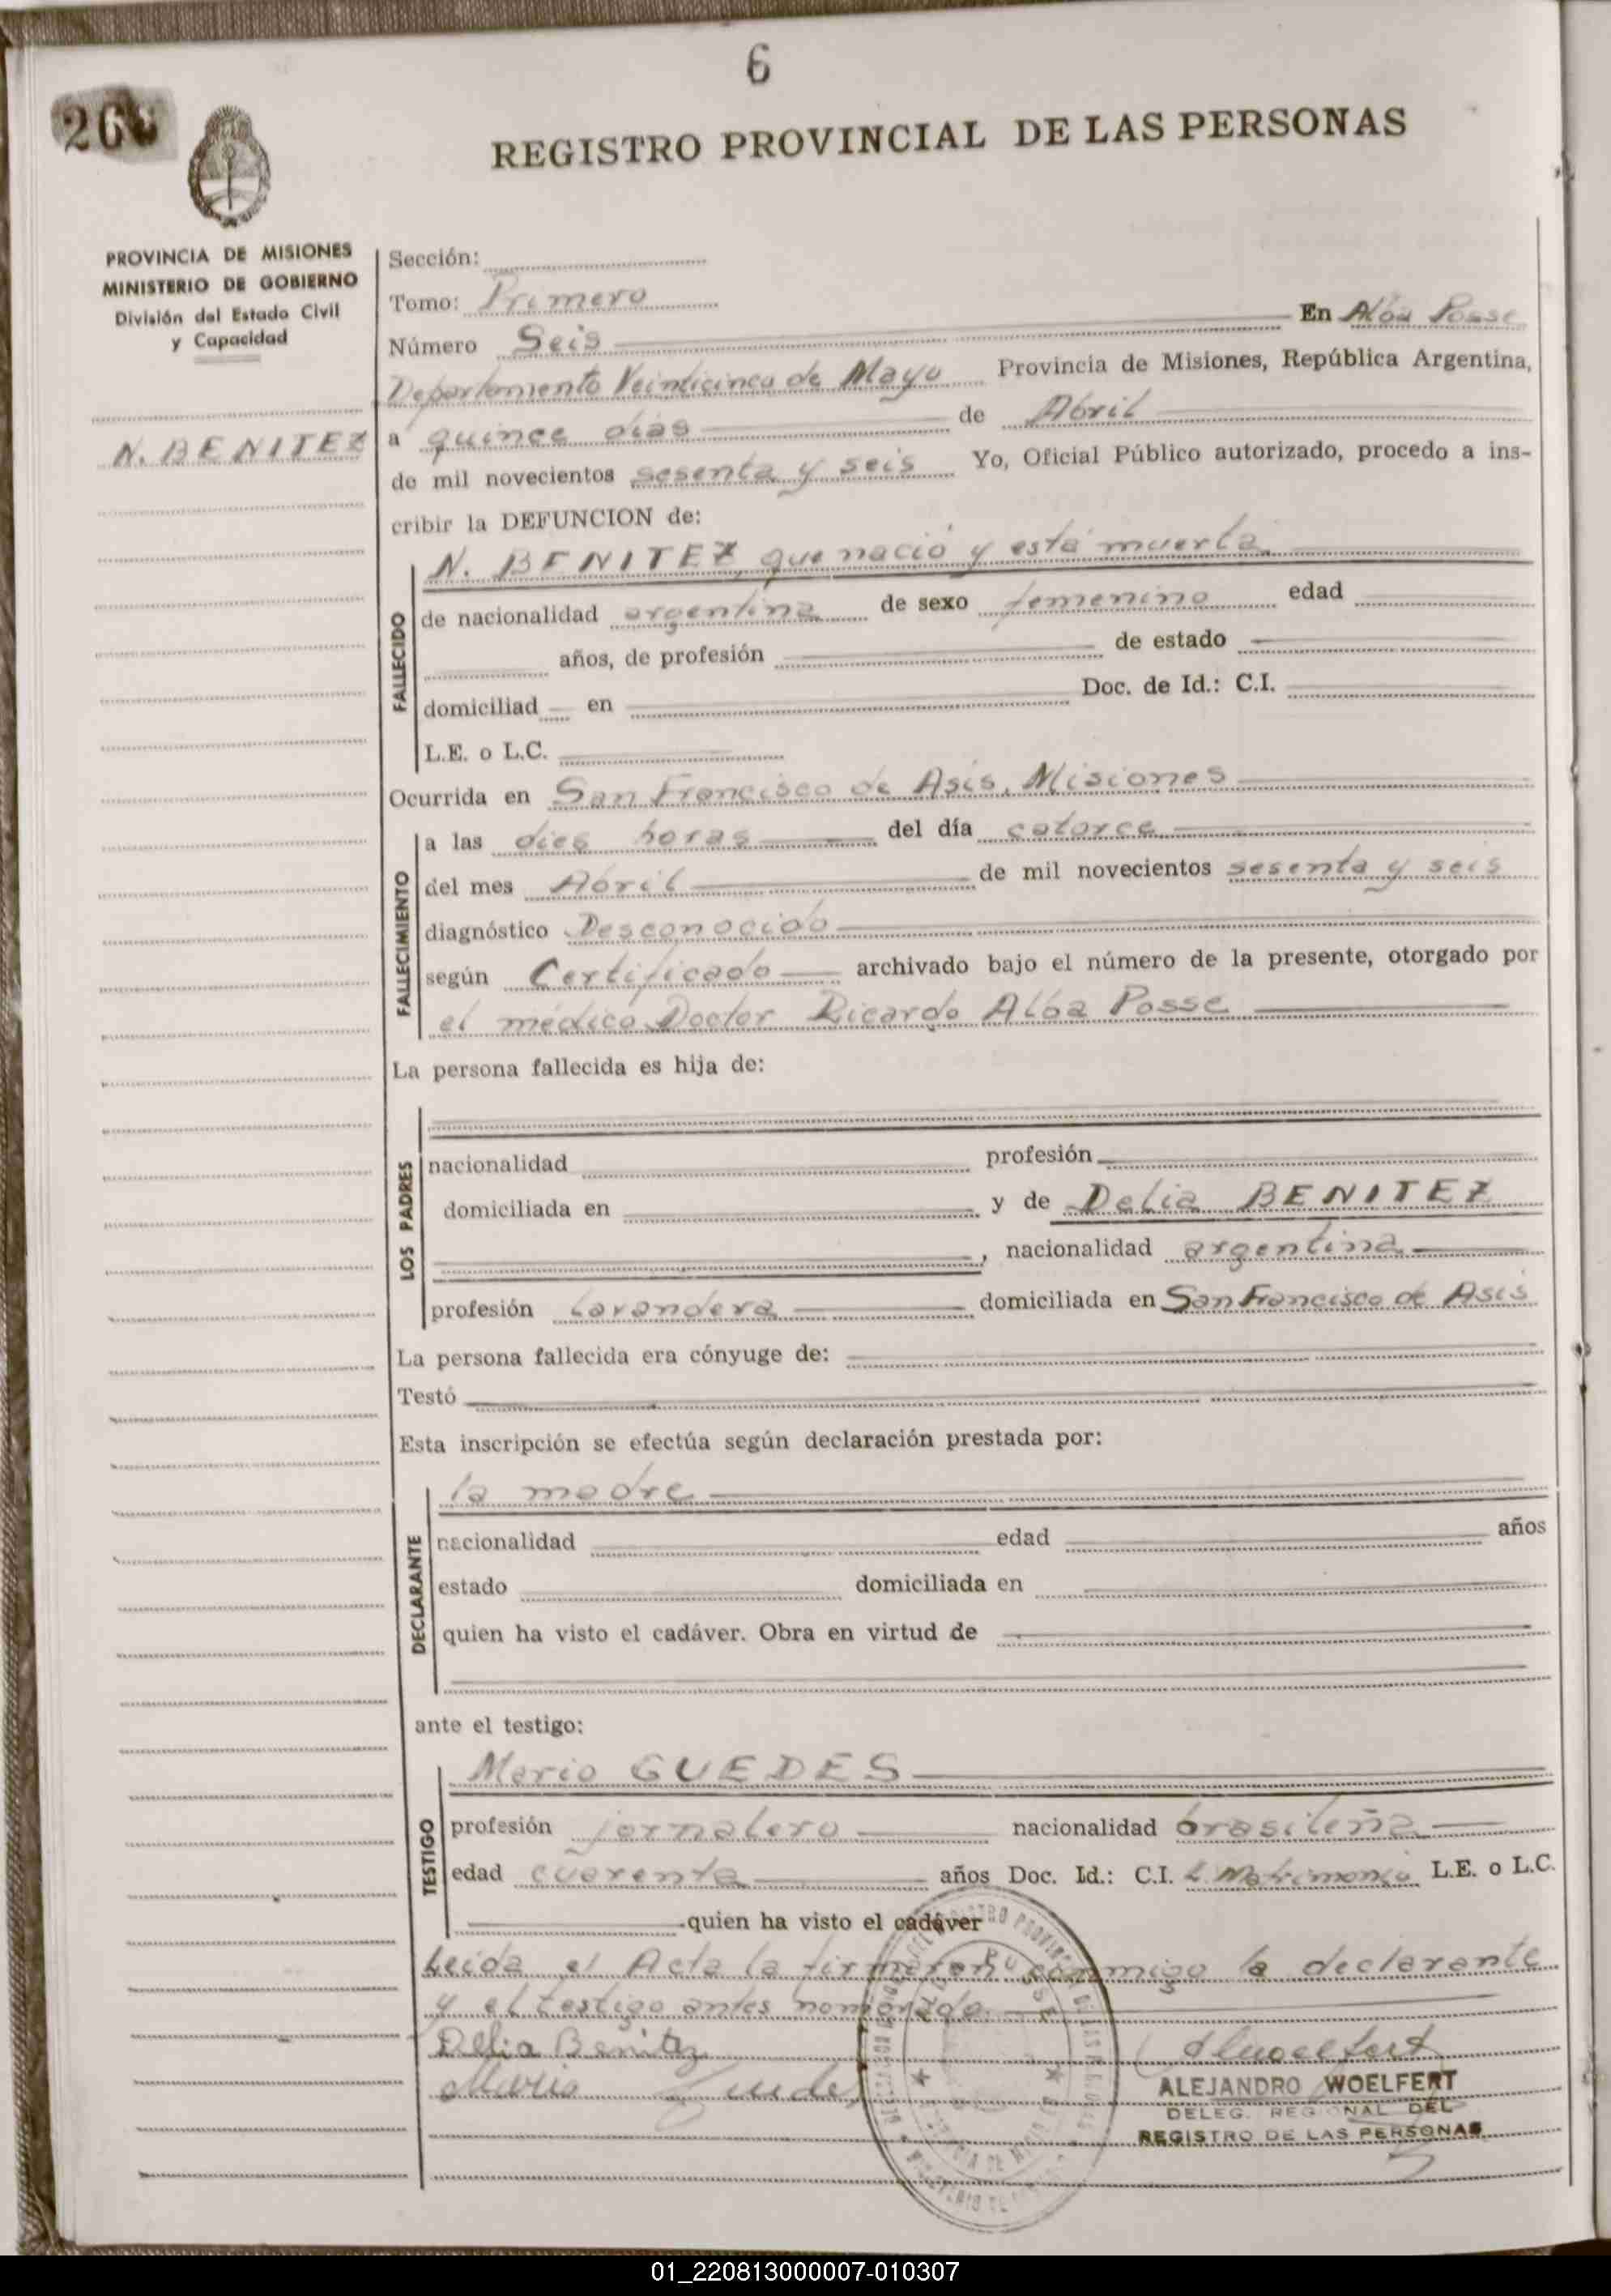 6
REGISTRO PROVINCIAL DE LAS PERSONAS
PROVINCIA DE MISIONES
MINISTERIO DE GOBIERNO
División del Estado Civil
y Capacidad
N. BENITEZ
Sección:
Tomo: Primero
Número Seis En Alba Posse
Departamento Veinticinco de Mayo Provincia de Misiones, República Argentina,
a quince dias de Abril
de mil novecientos sesenta y seis Yo, Oficial Público autorizado, procedo a ins-
cribir la DEFUNCION de:
N. BENITEZ, que nació y está muerta
FALLECIDO
de nacionalidad argentina de sexo femenino edad
años, de profesión de estado
domiciliad en Doc. de Id.: C.I.
L.E. o L.C.
Ocurrida en San Francisco de Asis, Misiones
FALLECIMIENTO
a las dies horas del día catorce
del mes Abril de mil novecientos sesenta y seis
diagnóstico Desconocido
según Certificado archivado bajo el número de la presente, otorgado por
el médico Doctor Ricardo Alba Posse
La persona fallecida es hija de:
LOS PADRES
nacionalidad profesión
domiciliada en y de Delia BENITEZ
, nacionalidad argentina
profesión Lavandera domiciliada en San Francisco de Asis
La persona fallecida era cónyuge de:
Testó
Esta inscripción se efectúa según declaración prestada por:
DECLARANTE
la madre
nacionalidad edad años
estado domiciliada en
quien ha visto el cadáver. Obra en virtud de
ante el testigo:
TESTIGO
Mario GUEDES
profesión jornalero nacionalidad brasileña
edad cuarenta años Doc. Id.: C.I. L. Matrimonio L.E. o L.C.
quien ha visto el cadáver
Leida el Acta la firmaron conmigo la declarante
y el testigo antes nombrado.
Delia Benitez
ALEJANDRO WOELFERT
DELEG. REGIONAL DEL
REGISTRO DE LAS PERSONAS
01_220813000007-010307